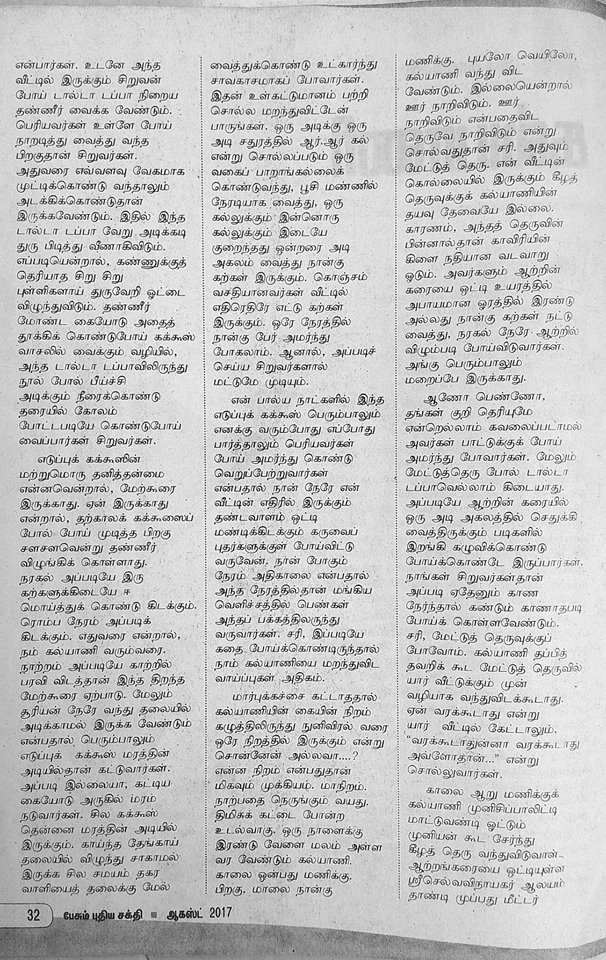 என்பார்கள். உடனே அந்த
வீட்டில் இருக்கும் சிறுவன்
போய் டால்டா டப்பா நிறைய
தண்ணீர் வைக்க வேண்டும்.
பெரியவர்கள் உள்ளே போய்
நாறடித்து வைத்து வந்த
பிறகுதான் சிறுவர்கள்.
அதுவரை எவ்வளவு வேகமாக
முட்டிக்கொண்டு வந்தாலும்
அடக்கிக்கொண்டுதான்
இருக்கவேண்டும். இதில் இந்த
டால்டா டப்பா வேறு அடிக்கடி
துரு பிடித்து வீணாகிவிடும்.
எப்படியென்றால், கண்ணுக்குத்
தெரியாத சிறு சிறு
புள்ளிகளாய் துருவேறி ஓட்டை
விழுந்துவிடும். தண்ணீர்
மோண்ட கையோடு அதைத்
தூக்கிக் கொண்டுபோய் கக்கூஸ்
வாசலில் வைக்கும் வழியில்,
அந்த டால்டா டப்பாவிலிருந்து
நூல் போல் பீய்ச்சி
அடிக்கும் நீரைக்கொண்டு
தரையில் கோலம்
போட்டபடியே கொண்டுபோய்
வைப்பார்கள் சிறுவர்கள்.
எடுப்புக் கக்கூஸின்
மற்றுமொரு தனித்தன்மை
என்னவென்றால், மேற்கூரை
இருக்காது. ஏன் இருக்காது
என்றால், தற்காலக் கக்கூஸைப்
போல் போய் முடித்த பிறகு
சளசளவென்று தண்ணீர்
விழுங்கிக் கொள்ளாது.
நரகல் அப்படியே இரு
கற்களுக்கிடையே ஈ
மொய்த்துக் கொண்டு கிடக்கும்.
ரொம்ப நேரம் அப்படிக்
கிடக்கும். எதுவரை என்றால்,
நம் கல்யாணி வரும்வரை.
நாற்றம் அப்படியே காற்றில்
பரவி விடத்தான் இந்த திறந்த
மேற்கூரை ஏற்பாடு. மேலும்
சூரியன் நேரே வந்து தலையில்
அடிக்காமல் இருக்க வேண்டும்
என்பதால் பெரும்பாலும்
எடுப்புக் கக்கூஸ் மரத்தின்
அடியில்தான் கட்டுவார்கள்.
அப்படி இல்லையா, கட்டிய
கையோடு அருகில் மரம்
நடுவார்கள். சில கக்கூஸ்
தென்னை மரத்தின் அடியில்
இருக்கும். காய்ந்த தேங்காய்
தலையில் விழுந்து சாகாமல்
இருக்க சில சமயம் தகர
வாளியைத் தலைக்கு மேல்
வைத்துக்கொண்டு உட்கார்ந்து
சாவகாசமாகப் போவார்கள்.
இதன் உள்கட்டுமானம் பற்றி
சொல்ல மறந்துவிட்டேன்
பாருங்கள். ஒரு அடிக்கு ஒரு
அடி சதுரத்தில் ஆர்.ஆர் கல்
என்று சொல்லப்படும் ஒரு
வகைப் பாறாங்கல்லைக்
கொண்டுவந்து, பூசி மண்ணில்
நேரடியாக வைத்து, ஒரு
கல்லுக்கும் இன்னொரு
கல்லுக்கும் இடையே
குறைந்தது ஒன்றரை அடி
அகலம் வைத்து நான்கு
கற்கள் இருக்கும். கொஞ்சம்
வசதியானவர்கள் வீட்டில்
எதிரெதிரே எட்டு கற்கள்
இருக்கும். ஒரே நேரத்தில்
நான்கு பேர் அமர்ந்து
போகலாம். ஆனால், அப்படிச்
செய்ய சிறுவர்களால்
மட்டுமே முடியும்.
என் பால்ய நாட்களில் இந்த
எடுப்புக் கக்கூஸ் பெரும்பாலும்
எனக்கு வரும்போது எப்போது
பார்த்தாலும் பெரியவர்கள்
போய் அமர்ந்து கொண்டு
வெறுப்பேற்றுவார்கள்
என்பதால் நான் நேரே என்
வீட்டின் எதிரில் இருக்கும்
தண்டவாளம் ஒட்டி
மண்டிக்கிடக்கும் கருவைப்
புதர்களுக்குள் போய்விட்டு
வருவேன். நான் போகும்
நேரம் அதிகாலை என்பதால்
அந்த நேரத்தில்தான் மங்கிய
வெளிச்சத்தில் பெண்கள்
அந்தப் பக்கத்திலருந்து
வருவார்கள். சரி, இப்படியே
கதை போய்க்கொண்டிருந்தால்
நாம் கல்யாணியை மறந்துவிட
வாய்ப்புகள் அதிகம்.
மார்புக்கச்சை கட்டாததால்
கல்யாணியின் கையின் நிறம்
கழுத்திலிருந்து நுனிவிரல் வரை
ஒரே நிறத்தில் இருக்கும் என்று
சொன்னேன் அல்லவா....?
என்ன நிறம் என்பதுதான்
மிகவும் முக்கியம். மாநிறம்.
நாற்பதை நெருங்கும் வயது.
திமிசுக் கட்டை போன்ற
உடல்வாகு. ஒரு நாளைக்கு
இரண்டு வேளை மலம் அள்ள
வர வேண்டும் கல்யாணி.
காலை ஒன்பது மணிக்கு.
பிறகு, மாலை நான்கு
மணிக்கு. புயலோ வெயிலோ,
கல்யாணி வந்து விட
வேண்டும். இல்லையென்றால்
ஊர் நாறிவிடும். ஊர்
நாறிவிடும் என்பதைவிட
தெருவே நாறிவிடும் என்று
சொல்வதுதான் சரி. அதுவும்
மேட்டுத் தெரு. என் வீட்டின்
கொல்லையில் இருக்கும் கீழத்
தெருவுக்குக் கல்யாணியின்
தயவு தேவையே இல்லை.
காரணம், அந்தத் தெருவின்
பின்னால்தான் காவிரியின்
கிளை நதியான வடவாறு
ஓடும். அவர்களும் ஆற்றின்
கரையை ஒட்டி உயரத்தில்
அபாயமான ஓரத்தில் இரண்டு
அல்லது நான்கு கற்கள் நட்டு
வைத்து, நரகல் நேரே ஆற்றில்
விழும்படி போய்விடுவார்கள்.
அங்கு பெரும்பாலும்
மறைப்பே இருக்காது.
ஆணோ பெண்ணோ,
தங்கள் குறி தெரியுமே
என்றெல்லாம் கவலைப்படாமல்
அவர்கள் பாட்டுக்குப் போய்
அமர்ந்து போவார்கள். மேலும்
மேட்டுத்தெரு போல் டால்டா
டப்பாவெல்லாம் கிடையாது.
அப்படியே ஆற்றின் கரையில்
ஒரு அடி அகலத்தில் செதுக்கி
வைத்திருக்கும் படிகளில்
இறங்கி கழுவிக்கொண்டு
போய்க்கொண்டே இருப்பார்கள்.
நாங்கள் சிறுவர்கள்தான்
அப்படி ஏதேனும் காண
நேர்ந்தால் கண்டும் காணாதபடி
போய்க் கொள்ளவேண்டும்.
சரி, மேட்டுத் தெருவுக்குப்
போவோம். கல்யாணி தப்பித்
தவறிக் கூட மேட்டுத் தெருவில்
யார் வீட்டுக்கும் முன்
வழியாக வந்துவிடக்கூடாது.
ஏன் வரக்கூடாது என்று
யார் வீட்டில் கேட்டாலும்.
“வரக்கூடாதுன்னா வரக்கூடாது
அவ்ளோதான்...” என்று
சொல்லுவார்கள்.
காலை ஆறு மணிக்குக்
கல்யாணி முனிசிப்பாலிட்டி
மாட்டுவண்டி ஓட்டும்
முனியன் கூட சேர்ந்து
கீழத் தெரு வந்துவிடுவான்.
ஆற்றங்கரையை ஒட்டியுள்ள
ஸ்ரீசெல்வவிநாயகர் ஆலயம்
தாண்டி முப்பது மீட்டர்
32 பேசும் புதிய சக்தி ஆகஸ்ட் 2017